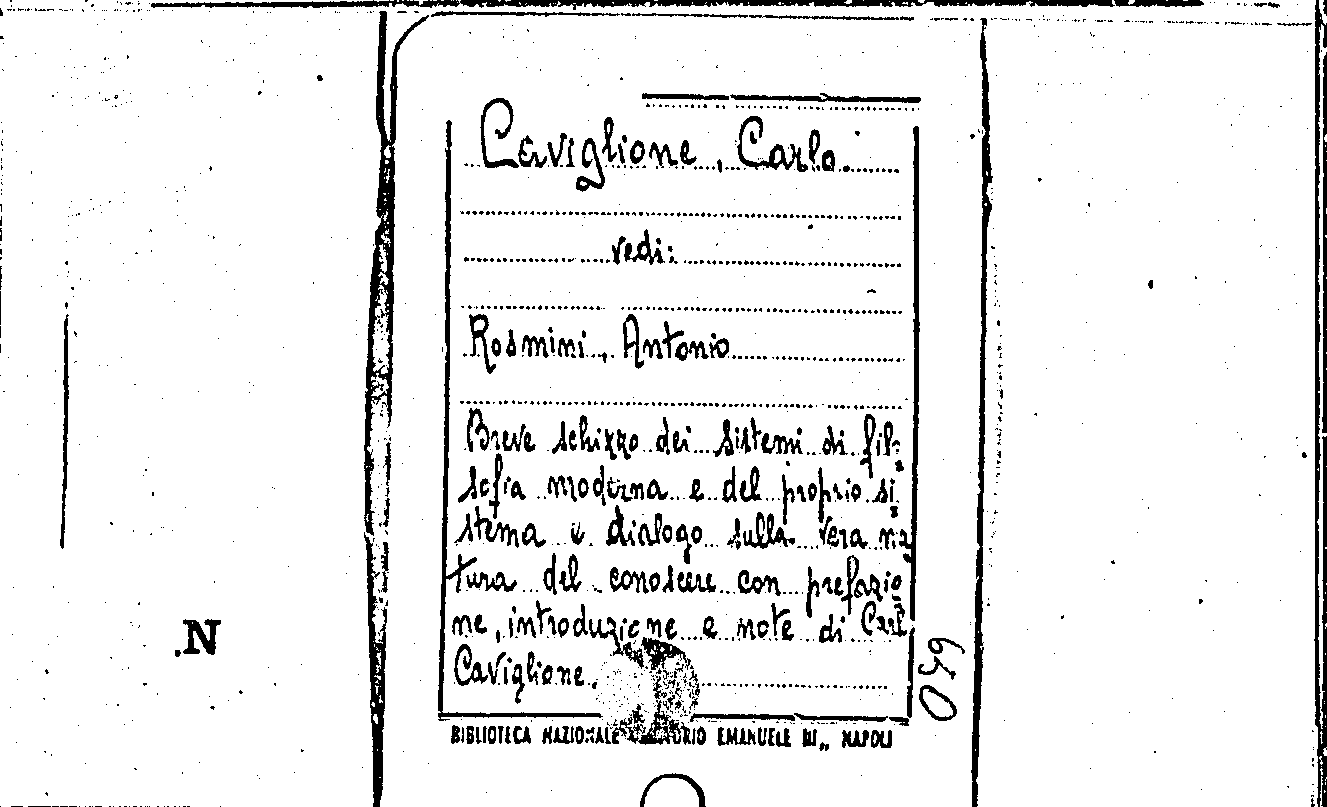 Caviglione, Carlo.
vedi:
Rosmini, Antonio
Breve schizzo dei sistemi di filo-
sofia moderna e del proprio si-
stema e dialogo sulla vera na-
tura del conoscere con prefazio-
ne, introduzione e note di Carlo
Caviglione.
BIBLIOTECA NAZIONALE EMANUELE III„ NAPOLI
.N